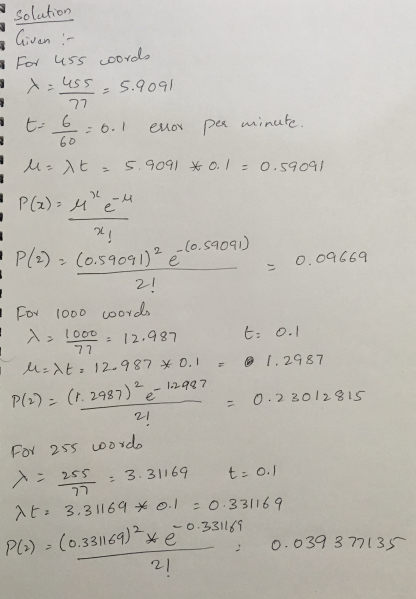 Solution
Given :-
For 455 words
λ = 455/77 = 5.9091
t = 6/60 = 0.1 error per minute.
μ = λt = 5.9091 * 0.1 = 0.59091
P(x) = μ^x e^-μ / x!
P(2) = (0.59091)^2 e^-(0.59091) / 2! = 0.09669
For 1000 words
λ = 1000/77 = 12.987 t = 0.1
μ = λt = 12.987 * 0.1 = 1.2987
P(2) = (1.2987)^2 e^-1.2987 / 2! = 0.23012815
For 255 words
λ = 255/77 = 3.31169 t = 0.1
λt = 3.31169 * 0.1 = 0.331169
P(2) = (0.331169)^2 * e^-0.331169 / 2! = 0.039377135